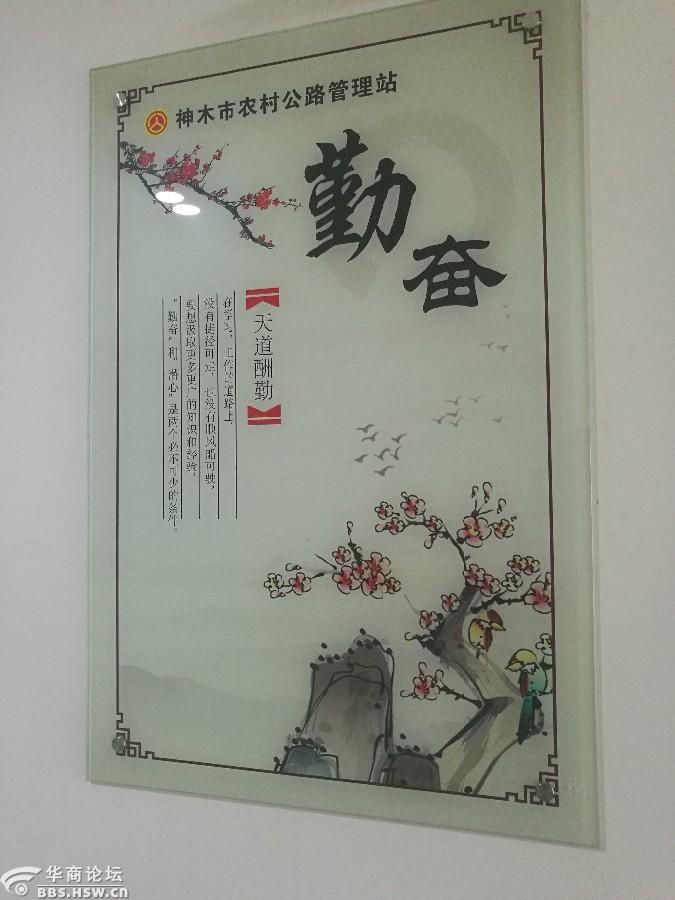 神木市农村公路管理站
勤奋
天道酬勤
在学习、工作的道路上，
没有捷径可走，也没有顺风船可驶，
要想汲取更多更广的知识和经验，
“勤奋”和“潜心”是两个必不可少的条件。
华商论坛
BBS.HSW.CN